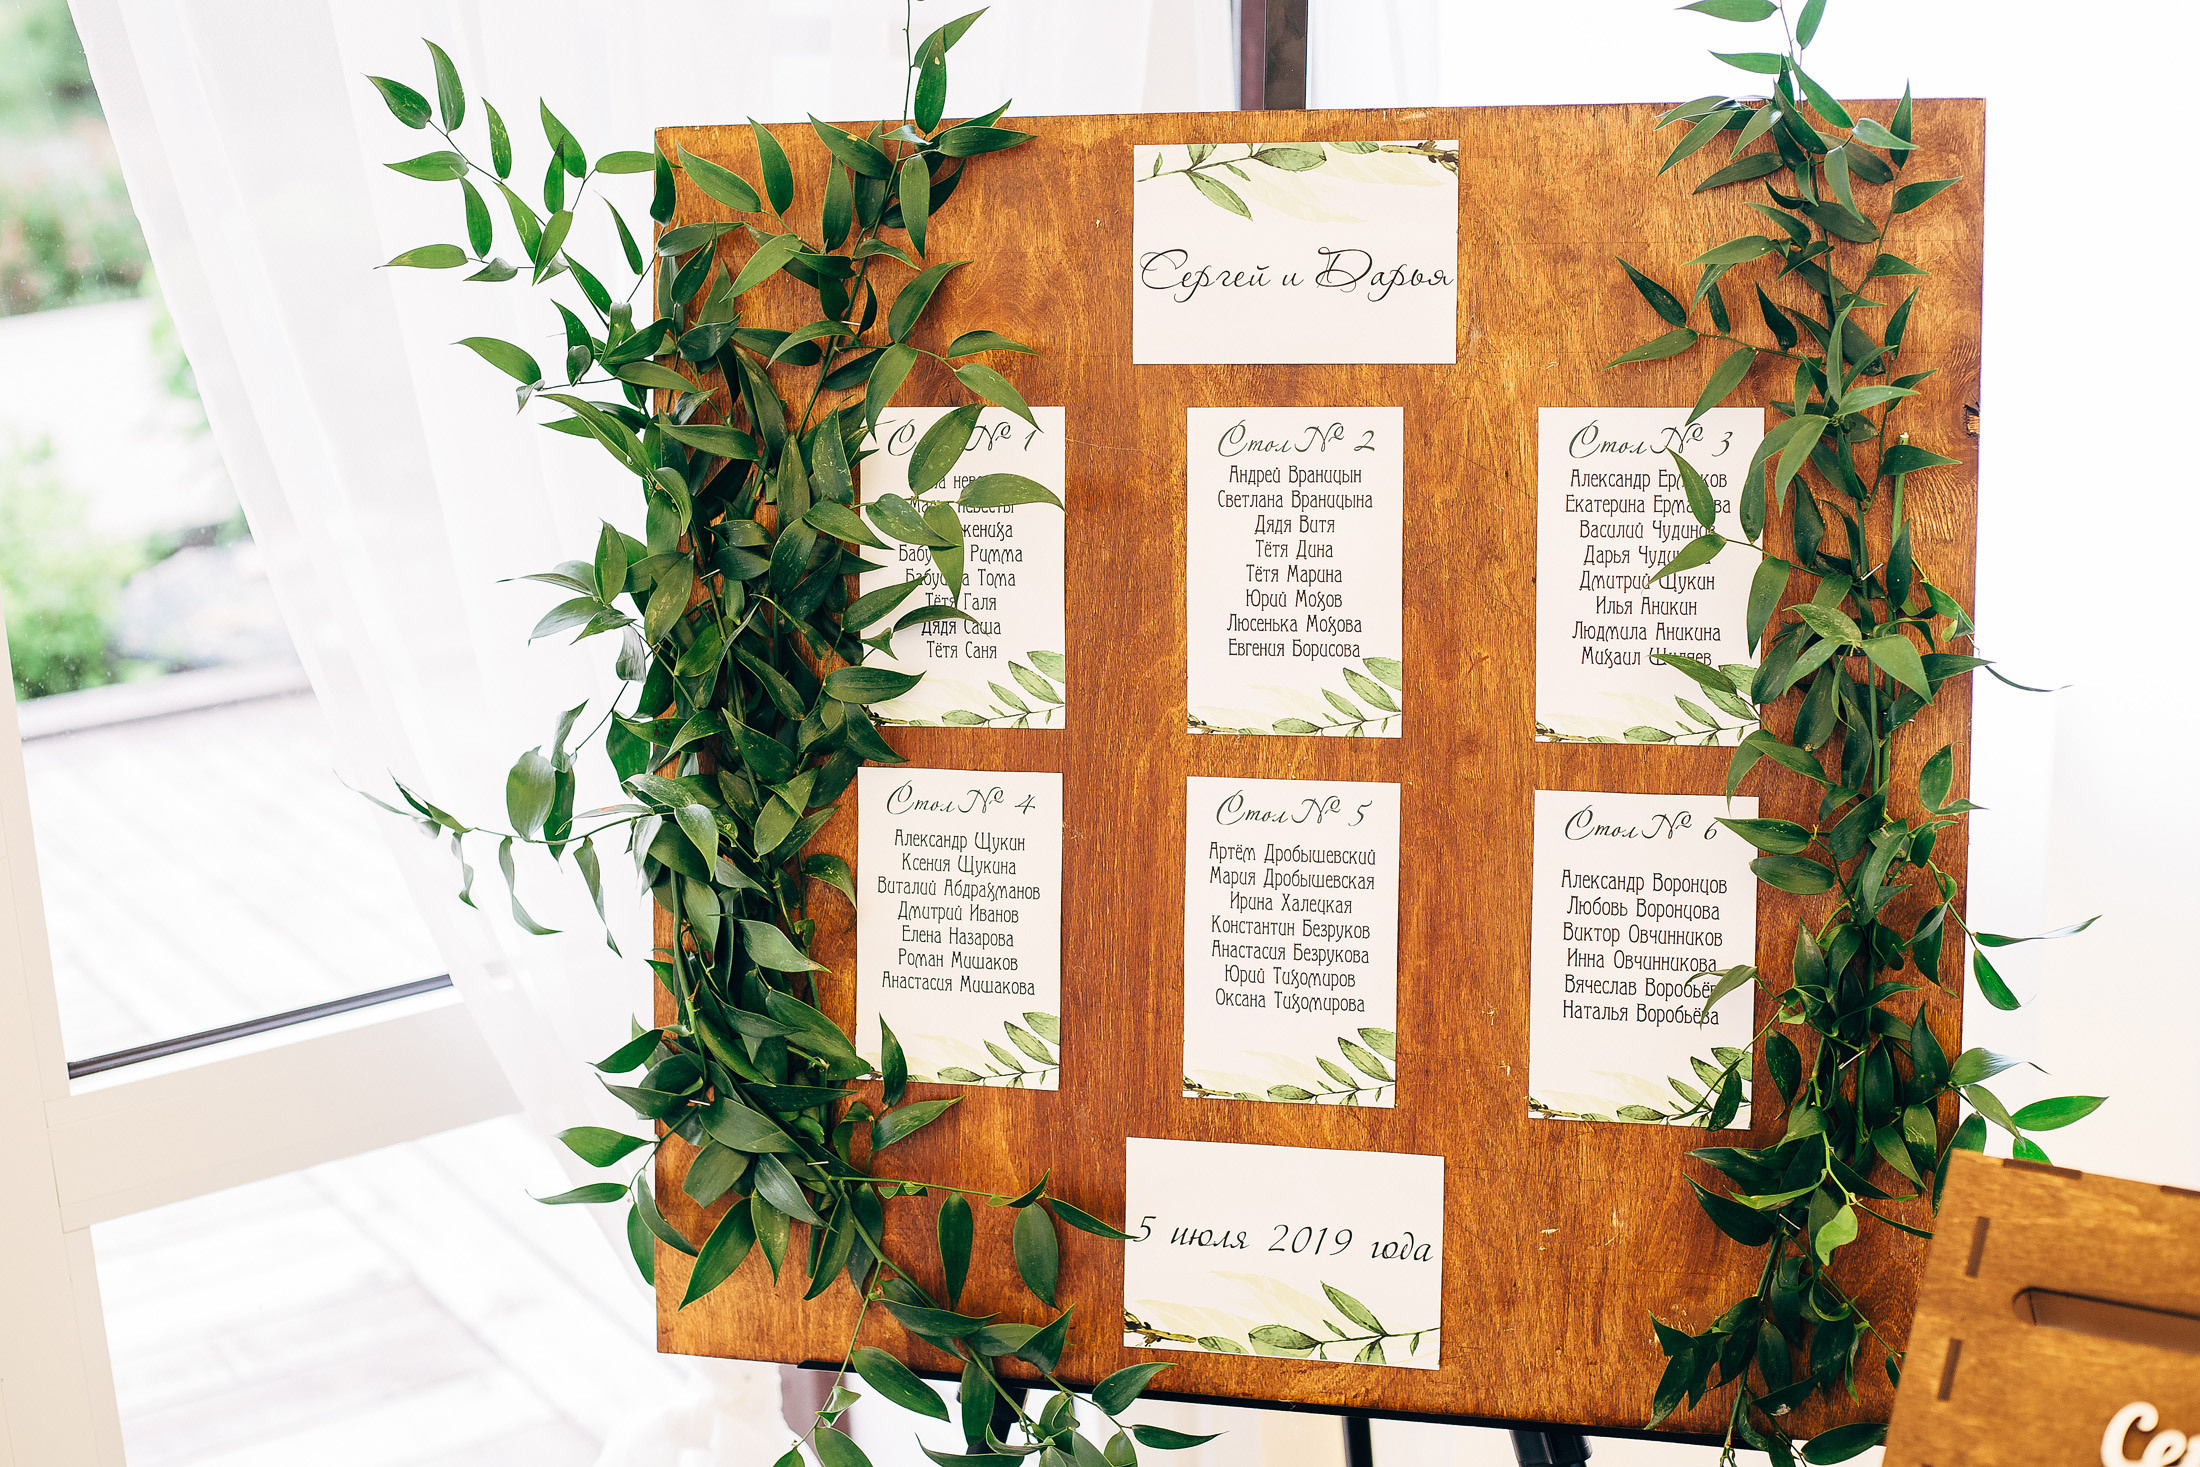 Сергей и Дарья
Стол № 1
невесты
жениха
Бабушка Римма
Бабушка Тома
Тётя Галя
Дядя Саша
Тётя Саня
Стол № 2
Андрей Враницын
Светлана Враницына
Дядя Витя
Тётя Дина
Тётя Марина
Юрий Мохов
Люсенька Мохова
Евгения Борисова
Стол № 3
Александр Ермаков
Екатерина Ермакова
Василий Чудинов
Дарья Чудинова
Дмитрий Щукин
Илья Аникин
Людмила Аникина
Михаил
Стол № 4
Александр Щукин
Ксения Щукина
Виталий Абдрахманов
Дмитрий Иванов
Елена Назарова
Роман Мишаков
Анастасия Мишакова
Стол № 5
Артём Дробышевский
Мария Дробышевская
Ирина Халецкая
Константин Безруков
Анастасия Безрукова
Юрий Тихомиров
Оксана Тихомирова
Стол № 6
Александр Воронцов
Любовь Воронцова
Виктор Овчинников
Инна Овчинникова
Вячеслав Воробьёв
Наталья Воробьёва
5 июля 2019 года